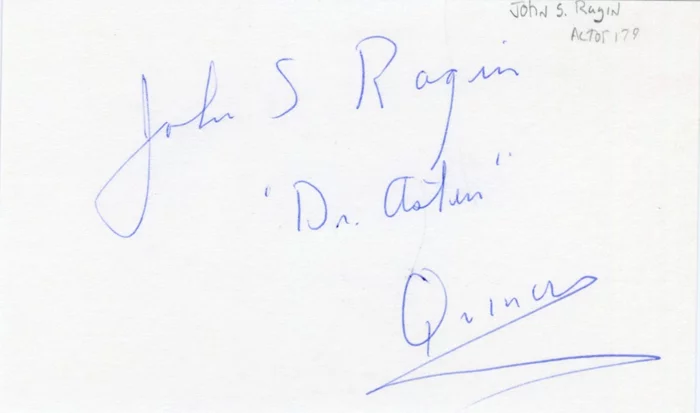 John S. Ragin
ACTOR 179
John S Ragin
"Dr. Asten"
Quincy